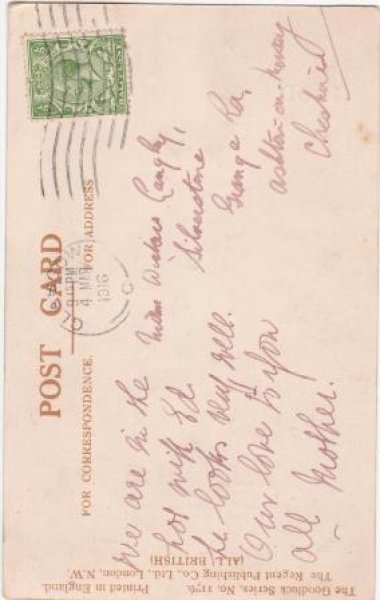 POST CARD
FOR CORRESPONDENCE.
FOR ADDRESS
9.15 PM
4 MAR
1916
We are in the
hos with
he looks very well.
Our love to you
all Mother.
Langley,
Silverstone
Grange Rd,
Ashton-on-Mersey
Cheshire
The Goodluck Series, No. 1176. Printed in England.
The Regent Publishing Co., Ltd., London, N.W.
(ALL BRITISH)